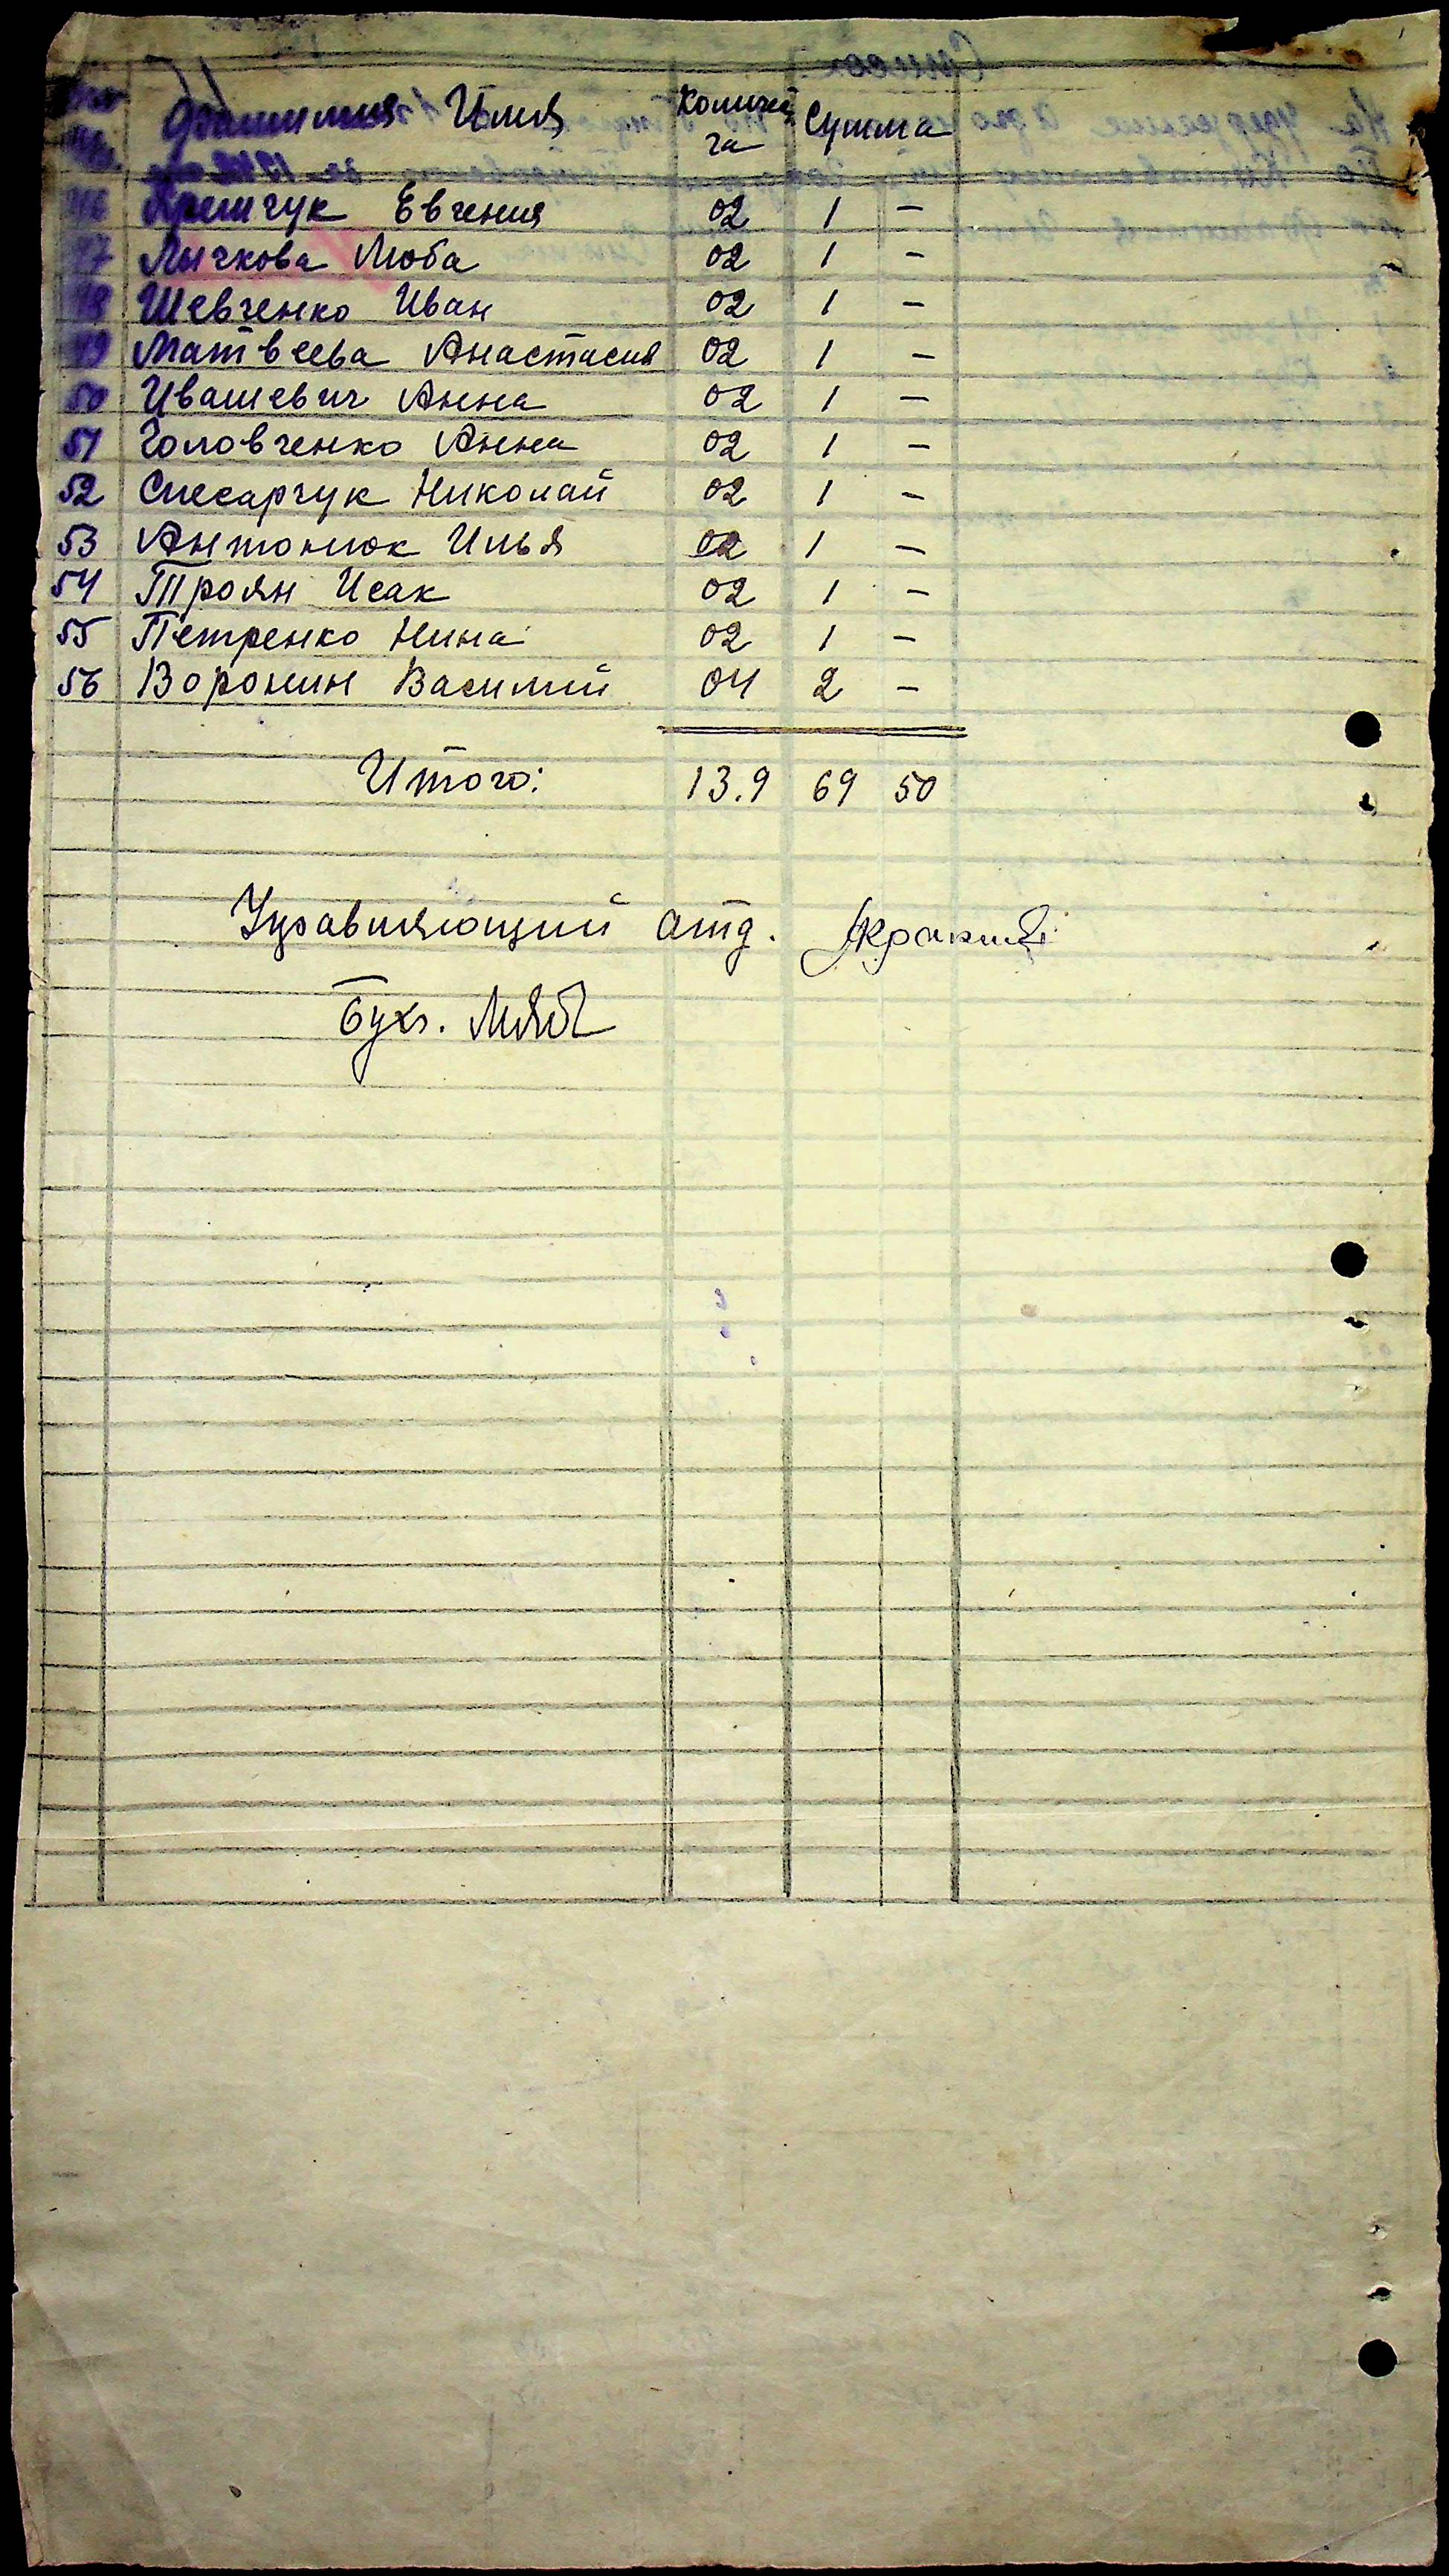 Фамилия Имя Количес. га Сумма
46 Крешчук Евгения 02 1 –
47 Лычкова Люба 02 1 –
48 Шевченко Иван 02 1 –
49 Матвеева Анастасия 02 1 –
50 Ивашевич Анна 02 1 –
51 Головченко Анна 02 1 –
52 Слесарчук Николай 02 1 –
53 Антонюк Илья 02 1 –
54 Троян Исак 02 1 –
55 Петренко Нина 02 1 –
56 Воронин Василий 04 2 –
Итого: 13.9 69 50
Управляющий отд.
Бухг.